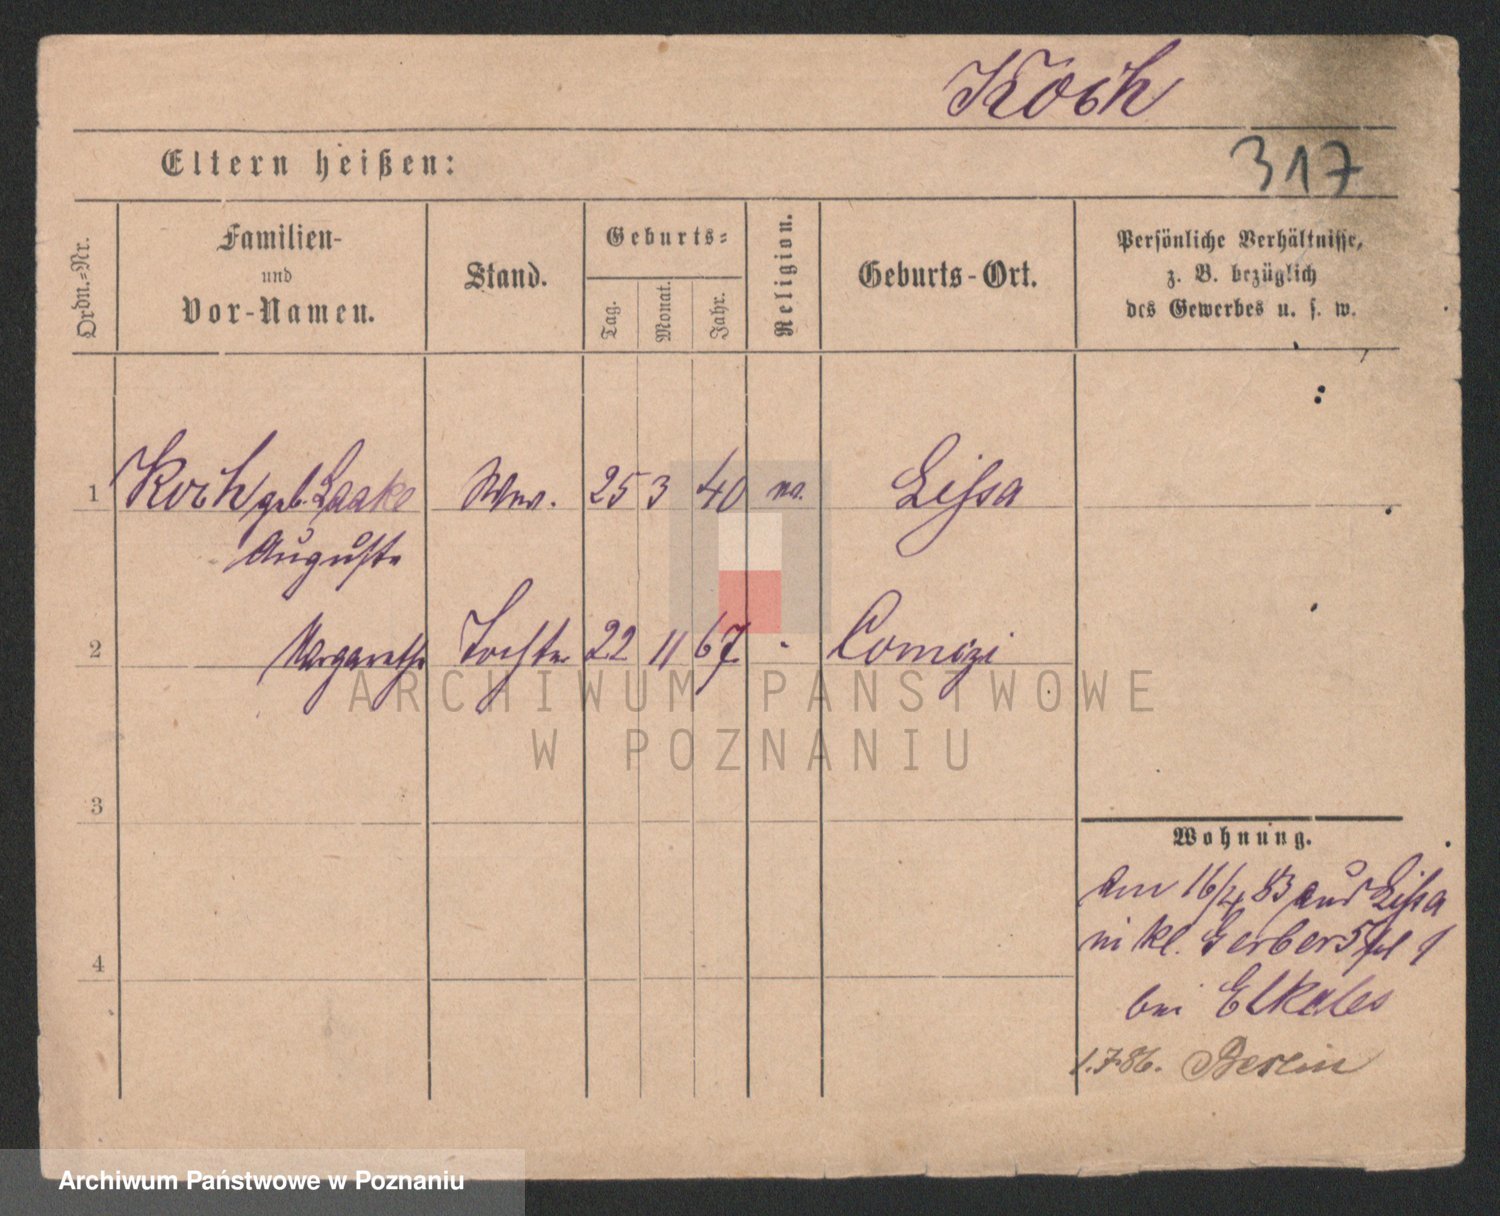 Koch
317
Eltern heißen:
Ordn.-Nr.
Familien-
und
Vor-Namen.
Stand.
Geburts-
Tag.
Monat.
Jahr.
Religion.
Geburts-Ort.
Persönliche Verhältnisse,
z. B. bezüglich
des Gewerbes u. s. w.
1 Koch geb. Laake Wwe. 25 3 40 Lissa
Auguste
2 Margarethe Tochter 22 11 67 Comizi
ARCHIWUM PAŃSTWOWE
W POZNANIU
3
Wohnung.
am 16/4 83 aus Lissa
kl. Gerber 5
4
bei Elkeles
1.7.86. Berlin
Archiwum Państwowe w Poznaniu